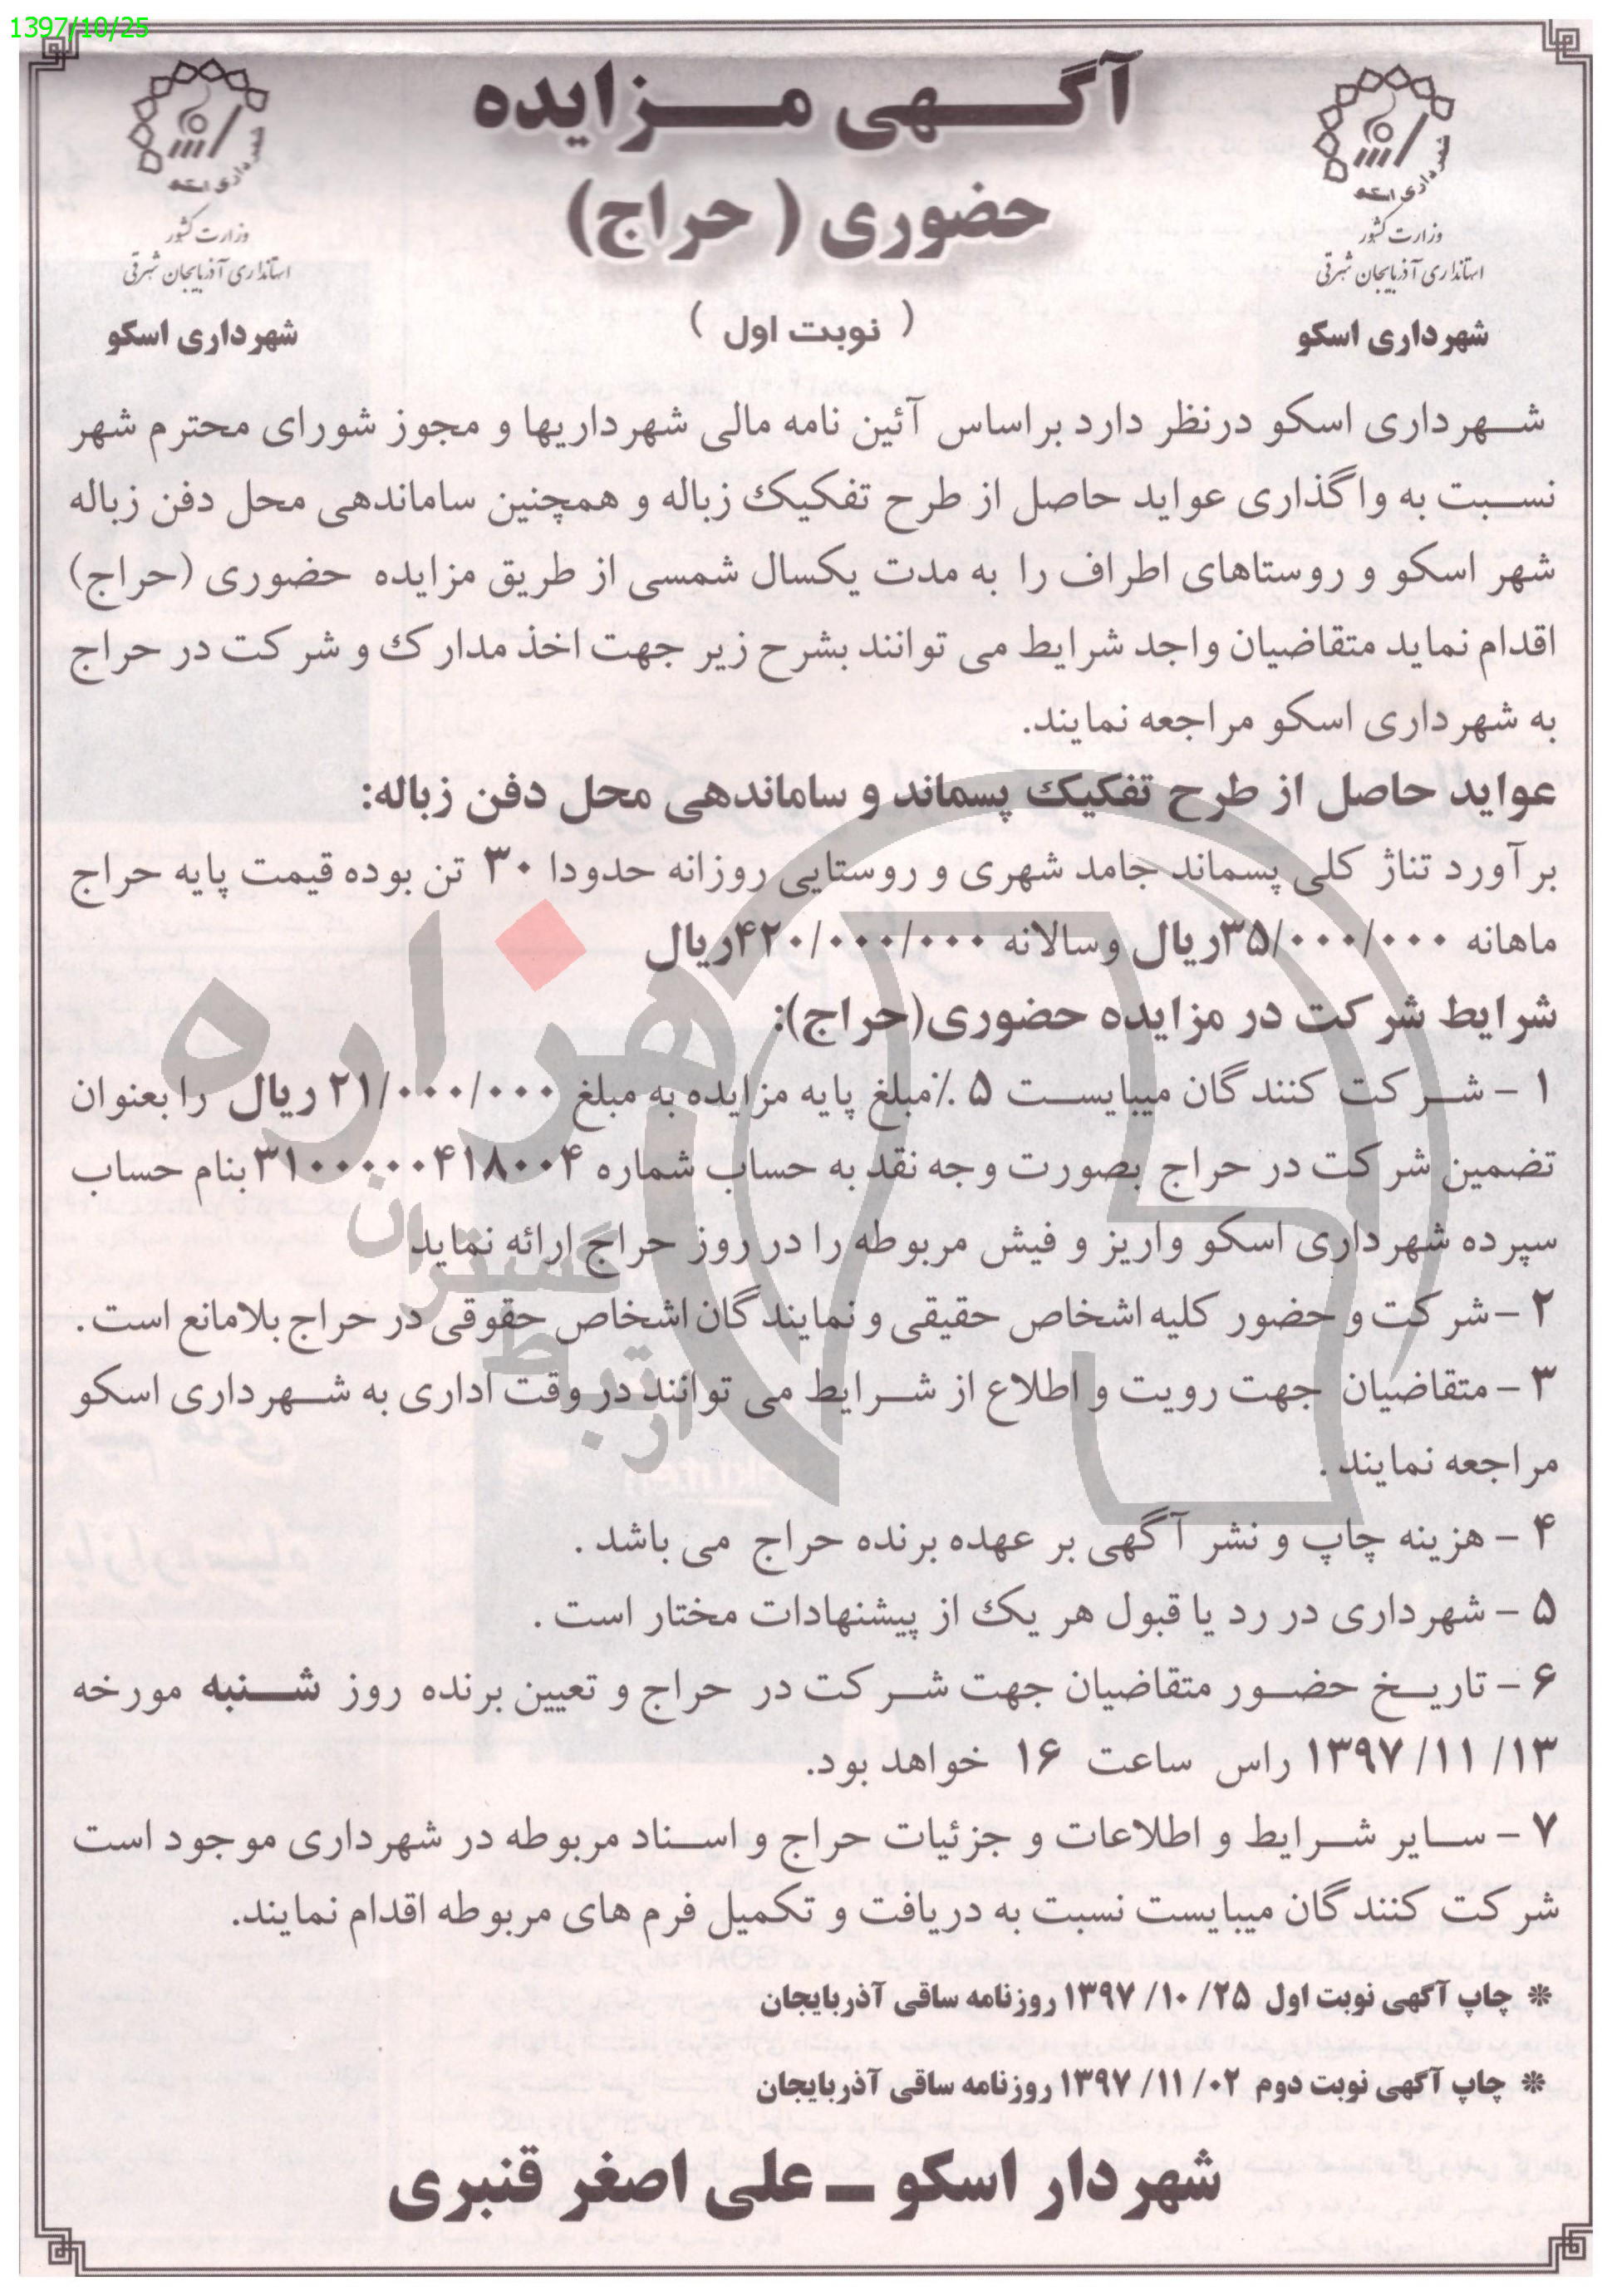 1397/10/25
آگهی مزایده
حضوری ( حراج)
( نوبت اول )
وزارت کشور
استانداری آذربایجان شرقی
شهرداری اسکو
وزارت کشور
استانداری آذربایجان شرقی
شهرداری اسکو
شهرداری اسکو درنظر دارد براساس آئین نامه مالی شهرداریها و مجوز شورای محترم شهر
نسبت به واگذاری عواید حاصل از طرح تفکیک زباله و همچنین ساماندهی محل دفن زباله
شهر اسکو و روستاهای اطراف را به مدت یکسال شمسی از طریق مزایده حضوری (حراج)
اقدام نماید متقاضیان واجد شرایط می توانند بشرح زیر جهت اخذ مدارک و شرکت در حراج
به شهرداری اسکو مراجعه نمایند.
عواید حاصل از طرح تفکیک پسماند و ساماندهی محل دفن زباله:
برآورد تناژ کلی پسماند جامد شهری و روستایی روزانه حدودا ۳۰ تن بوده قیمت پایه حراج
ماهانه ۳۵/۰۰۰/۰۰۰ریال وسالانه ۴۲۰/۰۰۰/۰۰۰ریال
شرایط شرکت در مزایده حضوری(حراج):
۱ - شرکت کنندگان میبایست ۵ ٪مبلغ پایه مزایده به مبلغ ۲۱/۰۰۰/۰۰۰ ریال را بعنوان
تضمین شرکت در حراج بصورت وجه نقد به حساب شماره ۳۱۰۰۰۰۰۴۱۸۰۰۴ بنام حساب
سپرده شهرداری اسکو واریز و فیش مربوطه را در روز حراج ارائه نماید
۲ - شرکت و حضور کلیه اشخاص حقیقی و نمایندگان اشخاص حقوقی در حراج بلامانع است .
۳ - متقاضیان جهت رویت و اطلاع از شرایط می توانند در وقت اداری به شهرداری اسکو
مراجعه نمایند .
۴ - هزینه چاپ و نشر آگهی بر عهده برنده حراج می باشد .
۵ - شهرداری در رد یا قبول هر یک از پیشنهادات مختار است .
۶ - تاریخ حضور متقاضیان جهت شرکت در حراج و تعیین برنده روز شنبه مورخه
۱۳/ ۱۱/ ۱۳۹۷ راس ساعت ۱۶ خواهد بود.
۷ - سایر شرایط و اطلاعات و جزئیات حراج و اسناد مربوطه در شهرداری موجود است
شرکت کنندگان میبایست نسبت به دریافت و تکمیل فرم های مربوطه اقدام نمایند.
* چاپ آگهی نوبت اول ۲۵/ ۱۰/ ۱۳۹۷ روزنامه ساقی آذربایجان
* چاپ آگهی نوبت دوم ۰۲/ ۱۱/ ۱۳۹۷ روزنامه ساقی آذربایجان
شهردار اسکو ـ علی اصغر قنبری
هزاره
گستران
ارتباط